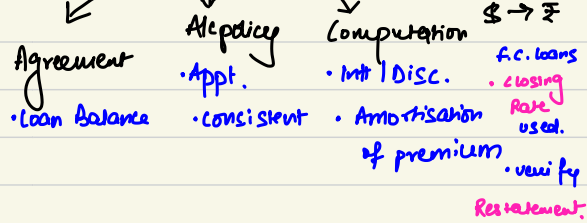 Agreement
• Loan Balance
A/c policy
• Appt.
• consistent
Computation
• Intt / Disc.
• Amortisation
of premium
$ → ₹
f.c. loans
• closing
Rate
used.
• verify
Restatement.